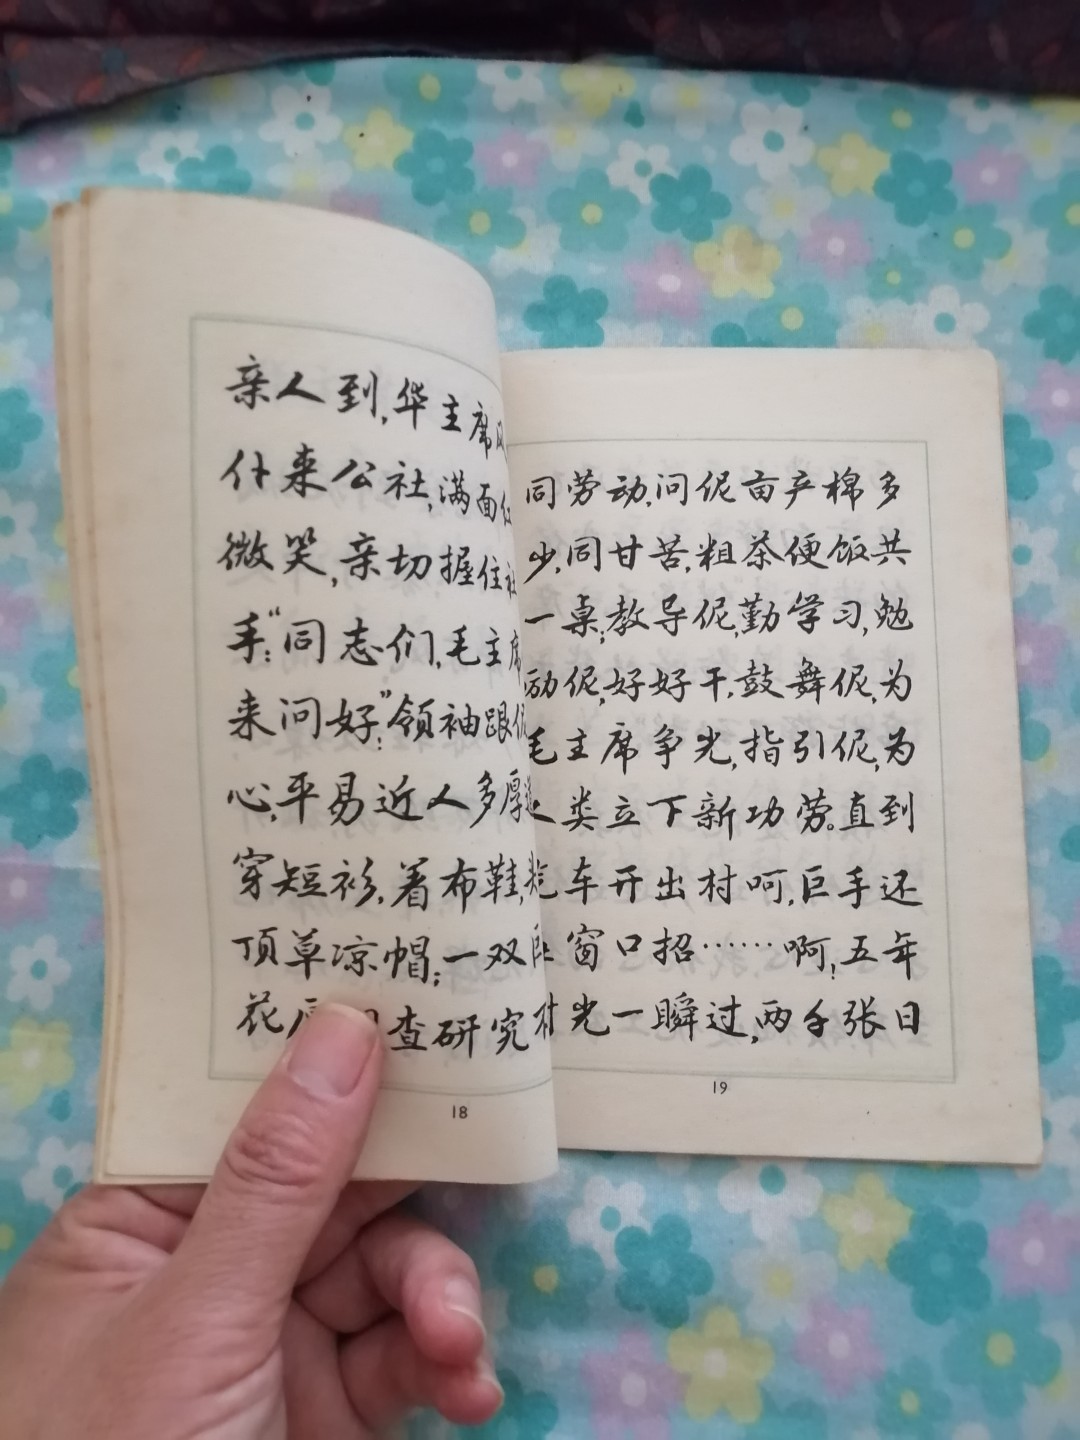 亲人到,华主席风
仆来公社,满面
微笑,亲切握住社
手:“同志们,毛主席
来问好”;领袖跟
心,平易近人多厚
穿短衫,着布鞋,
顶草凉帽;一双
花 查研究
18
同劳动,问伲亩产棉多
少,同甘苦,粗茶便饭共
一桌;教导伲,勤学习,勉
励伲,好好干,鼓舞伲,为
毛主席争光,指引伲,为
人类立下新功劳。直到
车开出村呵,巨手还
窗口招……啊!五年
光一瞬过,两千张日
19